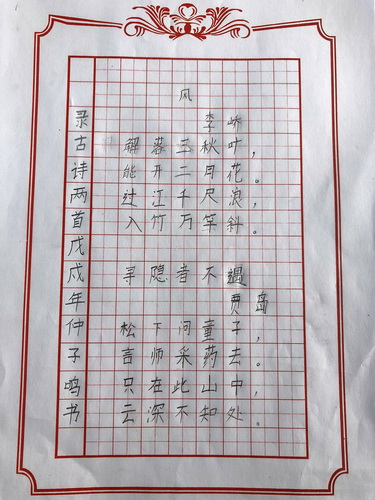 风
李峤
解落三秋叶，
能开二月花。
过江千尺浪，
入竹万竿斜。
寻隐者不遇
贾岛
松下问童子，
言师采药去。
只在此山中，
云深不知处。
录古诗两首戊戌年仲子鸣书